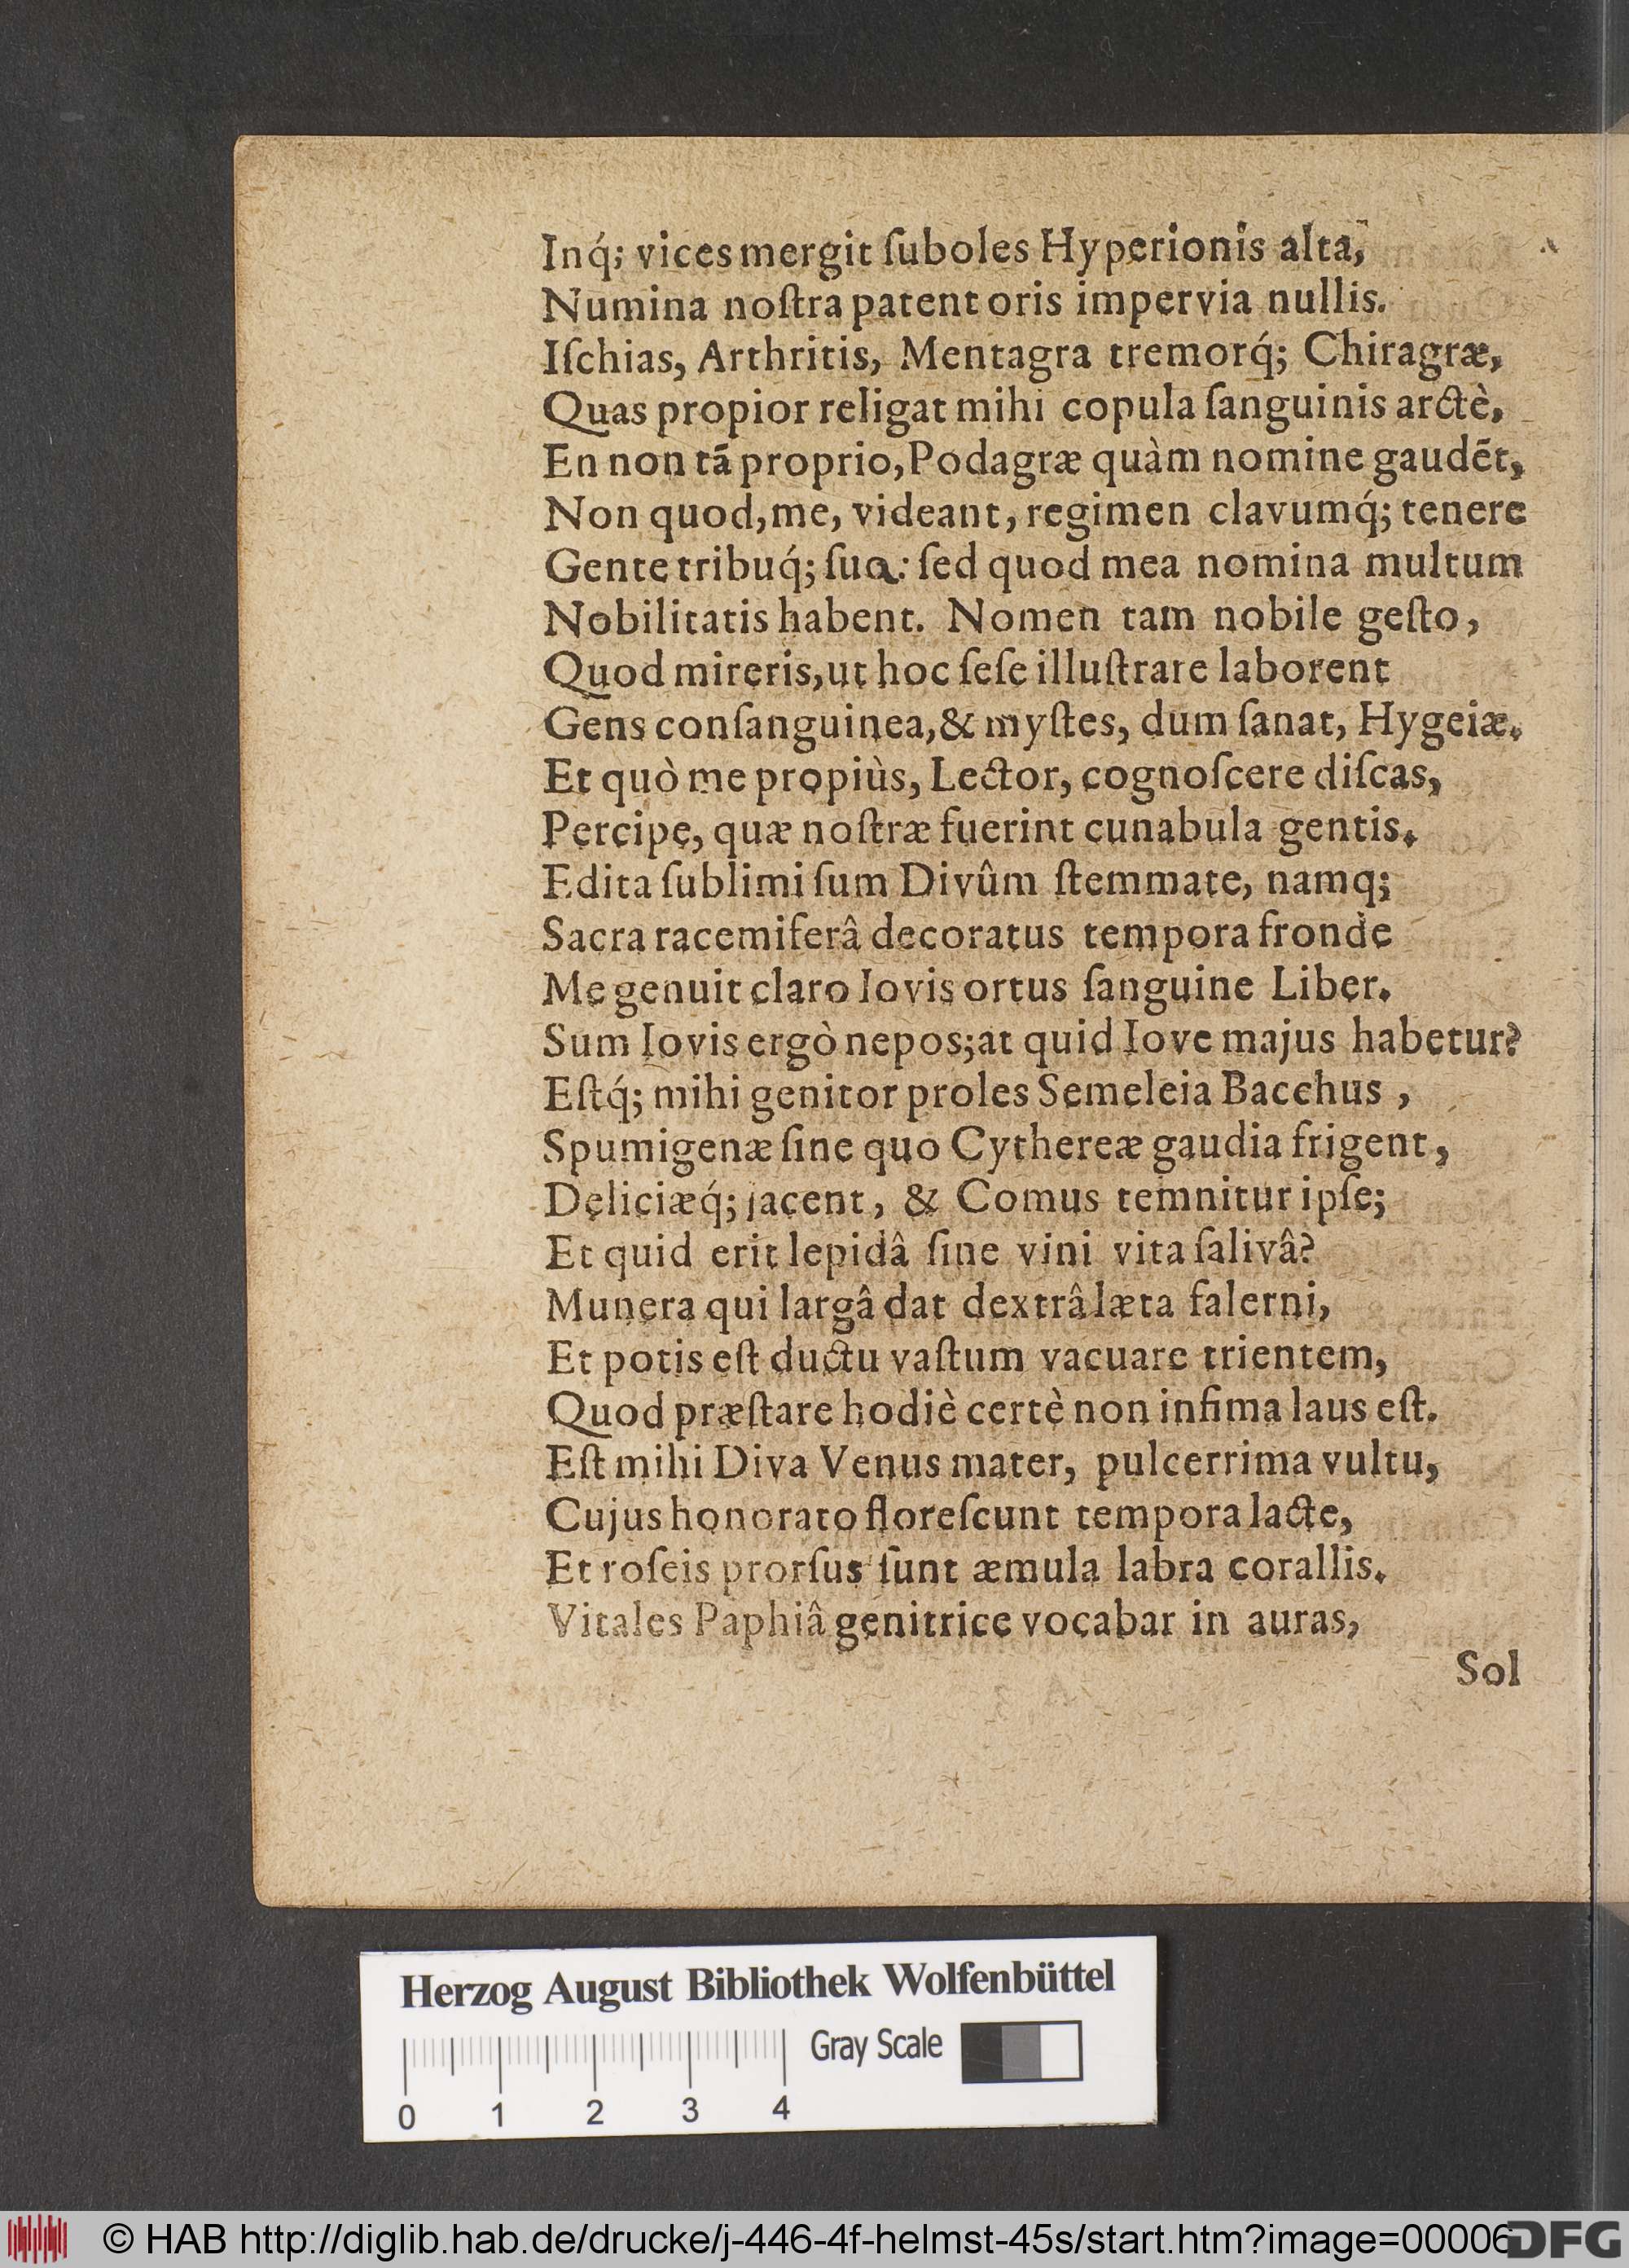 Inq́; vices mergit ſuboles Hyperionis alta,
Numina noſtra patent oris impervia nullis.
Iſchias, Arthritis, Mentagra tremorq́; Chiragræ,
Quas propior religat mihi copula ſanguinis arctè,
En non tā proprio, Podagræ quàm nomine gaudēt,
Non quod, me, videant, regimen clavumq́; tenere
Gente tribuq́; ſua: ſed quod mea nomina multum
Nobilitatis habent. Nomen tam nobile geſto,
Quod mireris, ut hoc ſeſe illuſtrare laborent
Gens conſanguinea, & myſtes, dum ſanat, Hygeiæ.
Et quò me propiùs, Lector, cognoſcere diſcas,
Percipe, quæ noſtræ fuerint cunabula gentis.
Edita ſublimi ſum Divûm ſtemmate, namq;
Sacra racemiferâ decoratus tempora frondè
Me genuit claro Iovis ortus ſanguine Liber.
Sum Iovis ergò nepos; at quid Iove majus habetur?
Eſtq́; mihi genitor proles Semeleia Bacchus,
Spumigenæ ſine quo Cythereæ gaudia frigent,
Deliciæq́; jacent, & Comus temnitur ipſe;
Et quid erit lepidâ ſine vini vita ſalivâ?
Munera qui largâ dat dextrâ læta falerni,
Et potis eſt ductu vaſtum vacuare trientem,
Quod præſtare hodiè certè non infima laus eſt.
Eſt mihi Diva Venus mater, pulcerrima vultu,
Cujus honorato floreſcunt tempora lacte,
Et roſeis prorſus ſunt æmula labra corallis.
Vitales Paphiâ genitrice vocabar in auras,
Sol
Herzog August Bibliothek Wolfenbüttel
Gray Scale
0 1 2 3 4
© HAB http://diglib.hab.de/drucke/j-446-4f-helmst-45s/start.htm?image=00006
DFG